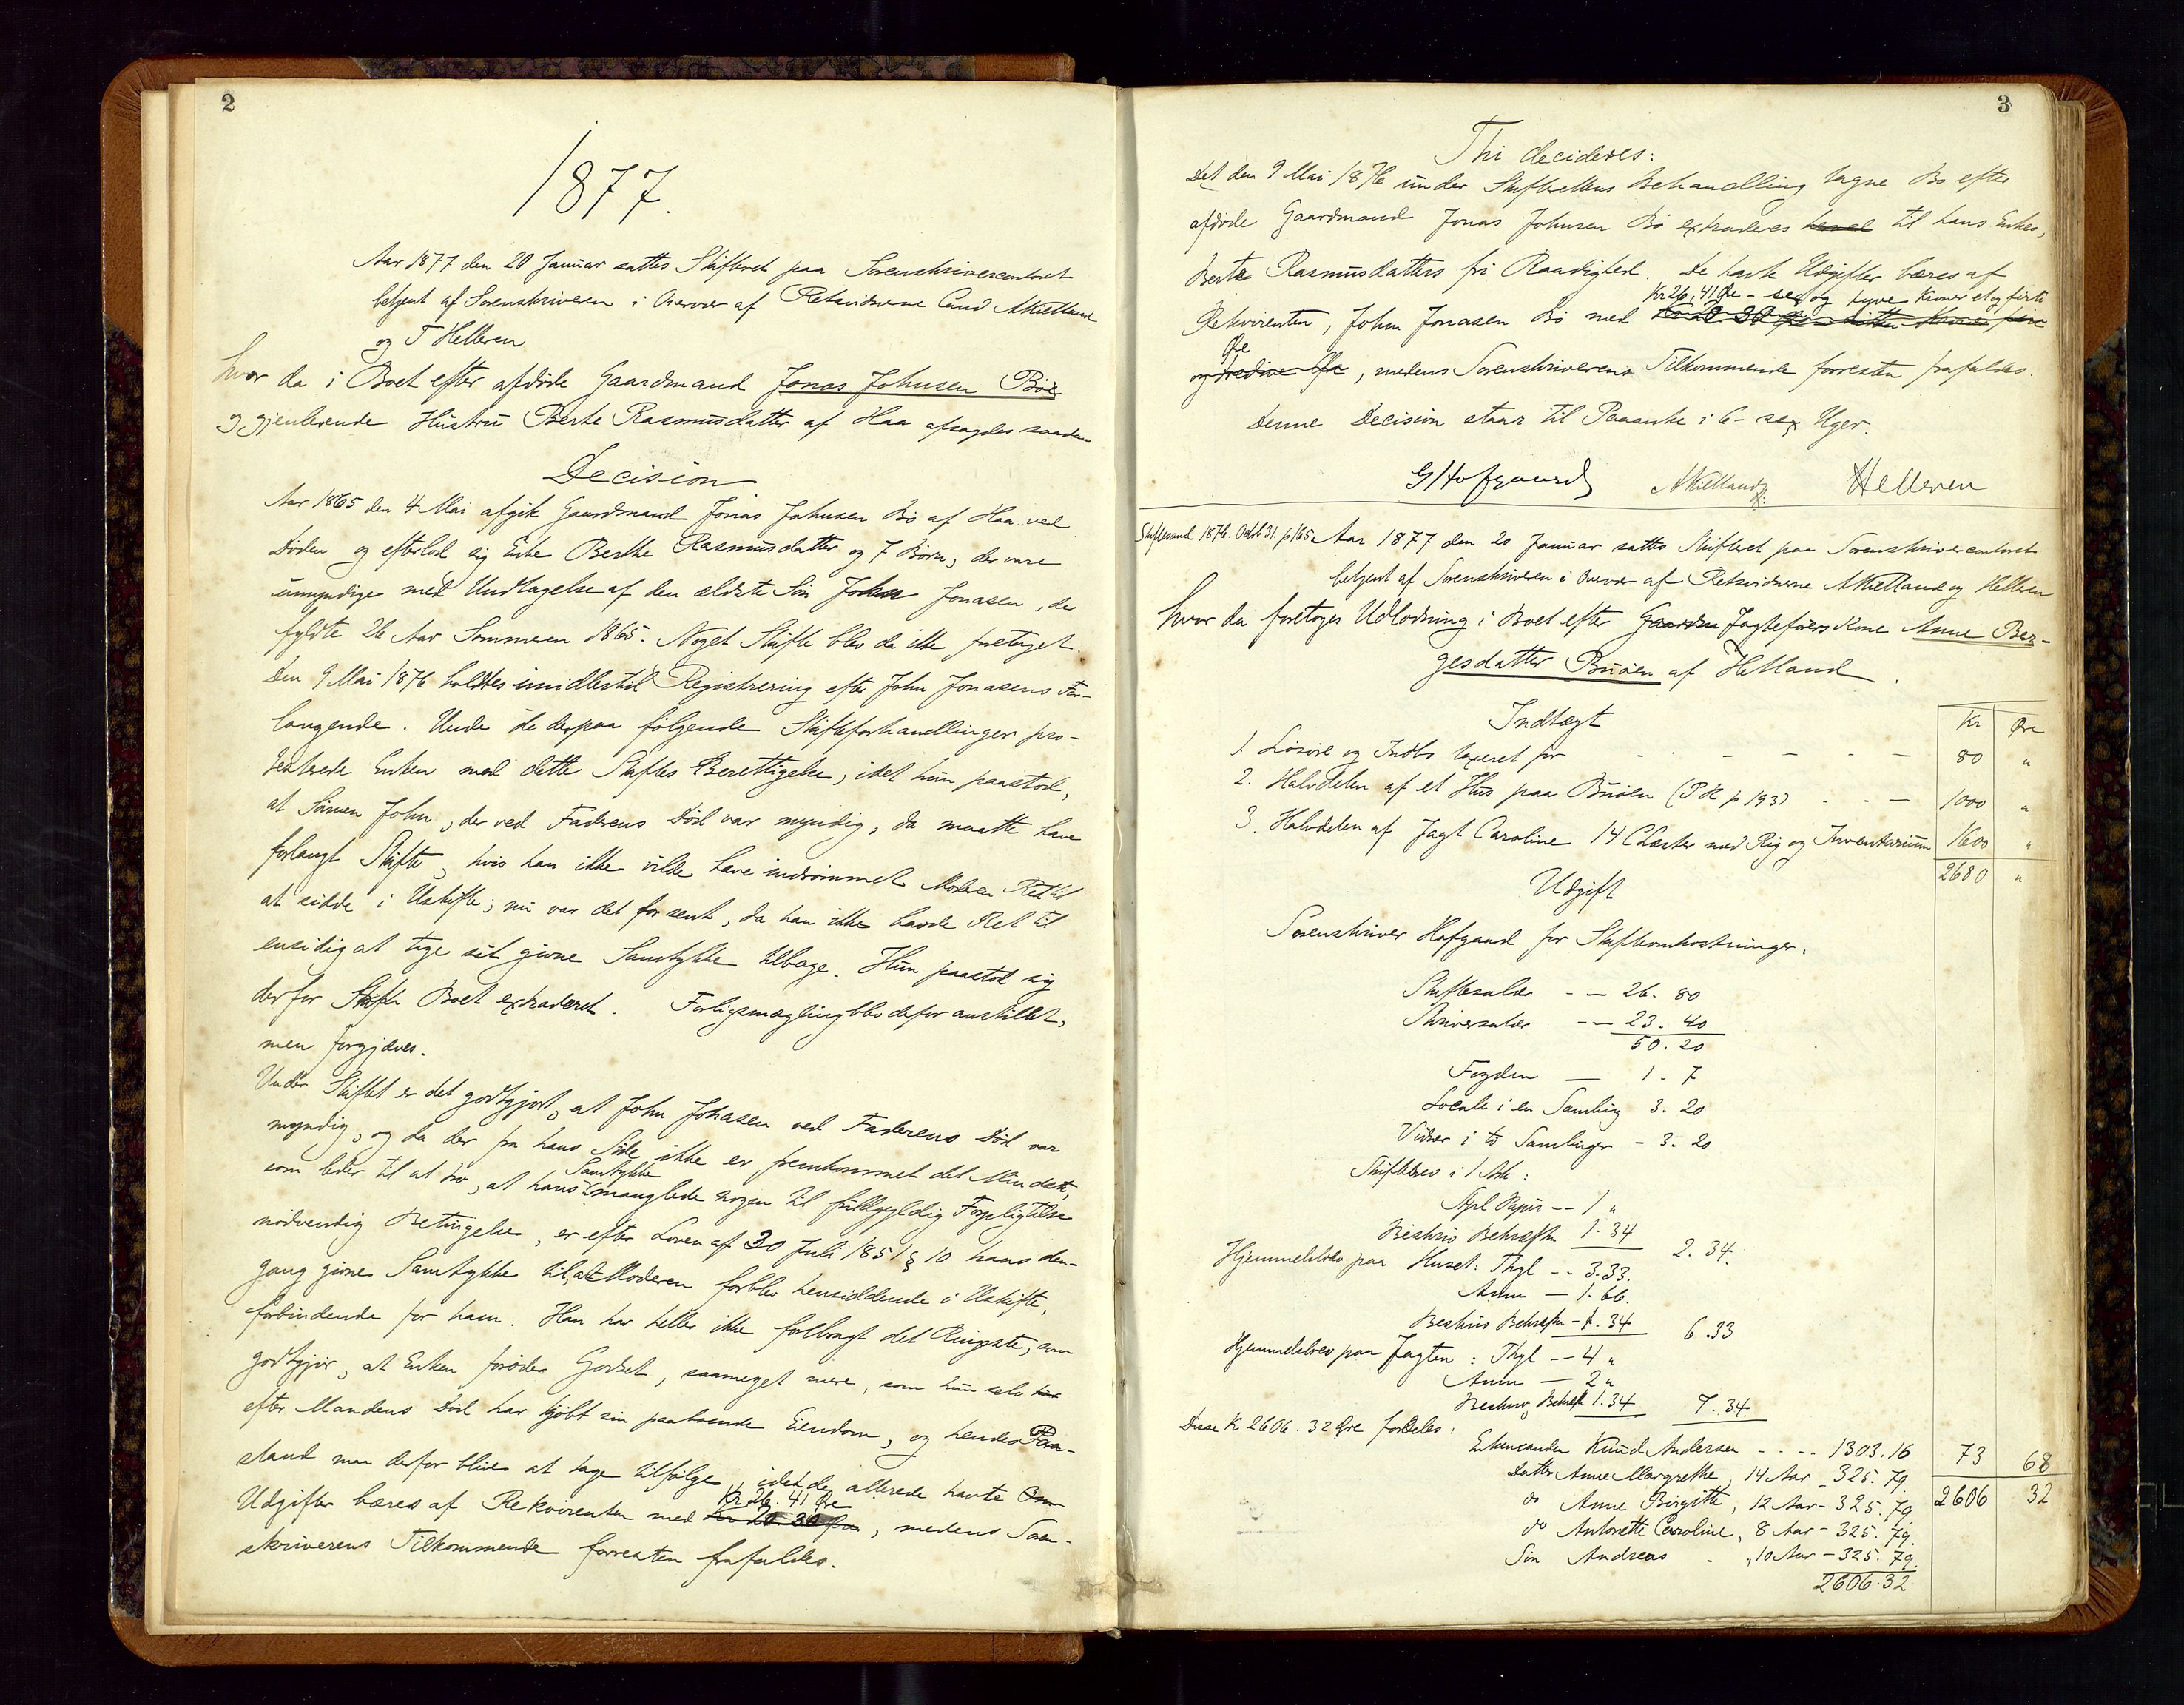 2
1877.
Aar 1877 den 20 Januar sattes Skifteret paa Sorenskrivercontoret
betjent af Sorenskriveren i Overvær af Retsvidnerne Cand AKielland
og T Helleren
hvor da i Boet efter afdøde Gaardmand Jonas Johnsen Bø
og gjenlevende Hustru Berte Rasmusdatter af Haa afsagdes saadan
Decision
Aar 1865 den 4 Mai afgik Gaardmand Jonas Johnsen Bø af Haa ved
Døden og efterlod sig Enke Berthe Rasmusdatter og 7 Børn, der vare
umyndige med Undtagelse af den ældste Søn John Jonasen, der
fyldte 26 Aar Sommeren 1865. Noget Skifte blev da ikke foretaget.
Den 9 Mai 1876 holdtes imidlertid Registrering efter John Jonasens For-
langende. Under de derpaa følgende Skifteforhandlinger pro-
testerede Enken mod dette Skiftes Berettigelse, idet hun paastod,
at Sønnen John, der ved Faderens Død var myndig, da maatte have
forlangt Skifte, hvis han ikke vilde have indrømmet Moderen Ret til
at sidde i Uskifte; nu var det for sent, da han ikke havde Ret til
ensidig at tage sit givne Samtykke tilbage. Hun paastod sig
derfor Boet extraderet. Forligsmægling blev derfor anstillet,
men forgjæves.
Under Skiftet er det godtgjort, at John Jonasen ved Faderens Død var
myndig, og da der fra hans Side ikke er fremkommet det Mindste,
som leder til at tro, at hans Samtykke manglede nogen til fuldgyldig Forpligtelse
nødvendig Betingelse, er efter Loven af 30 Juli 1851 § 10 hans den-
gang givne Samtykke til, at Moderen forblev hensiddende i Uskifte,
forbindende for ham. Han har heller ikke forebragt det Ringeste, som
godtgjør, at Enken forøder Godset, saameget mere, som hun selv
efter Mandens Død har kjøbt sin paaboende Eiendom, og hendes Paa-
stand maa derfor blive at tage tilfølge, idet de allerede havte
Kr 26. 41 Øre
Udgifter bæres af Rekvirenten med , medens Soren-
skriverens Tilkommende forresten frafaldes.
3
Thi decideres:
Det den 9 Mai 1876 under Skifterettens Behandling tagne Bo efter
afdøde Gaardmand Jonas Johnsen Bø extraderes til hans Enkes,
Berte Rasmusdatters fri Raadighed. De havte Udgifter bæres af
Kr 26, 41 Øre - sex og tyve Kroner et og firti
Rekvirenten, John Jonasen Bø med
Øre
, medens Sorenskriverens Tilkommende forresten frafaldes.
Denne Decision staar til Paaanke i 6 - sex Uger.
G Hofgaard AKielland Helleren
Aar 1877 den 20 Januar sattes Skifteret paa Sorenskrivercontoret
betjent af Sorenskriveren i Overvær af Retsvidnerne AKielland og Helleren
hvor da foretoges Udlodning i Boet efter Jagtefører Kone Anne Ber-
gesdatter Buøen af Hetland.
Kr Øre
Indtægt
1. Løsøre og Indbo taxeret for - - - - - 80 "
2. Halvdelen af et Hus paa Buøen (P K p 193) - - - 1000 "
3. Halvdelen af Jagt Caroline 14 CLæster med Rig og Inventarium 1600 "
2680 "
Udgift
Sorenskriver Hofgaard for Skifteomkostninger:
Skiftesalær - - 26. 80
Skriversalær - - 23. 40
50. 20
Fogden — 1. 7
Locale i en Samling 3. 20
Vidner i to Samlinger - 3. 20
Skiftebrev i 1 Ark:
Stpl Papir - - 1 "
Beskriv Bekræft 1. 34 2. 34.
Hjemmelsbrev paa Huset: Thgl - - 3. 33.
Ann — 1. 66.
Beskriv Bekræft - 1. 34 6. 33
Hjemmelsbrev paa Jagten: Thgl - - 4 "
Ann — 2 "
Beskriv, Bekræft 1. 34 7. 34. 73 68
Disse K 2606. 32 Øre fordeles: 2606 32
Enkemanden Knud Andersen - - - - 1303. 16
Datter Anne Margrethe, 14 Aar - 325. 79
do Anne Birgitte, 12 Aar - 325. 79
do Antonette Caroline, 8 Aar - 325. 79.
Søn Andreas - , 10 Aar - 325. 79.
2606. 32